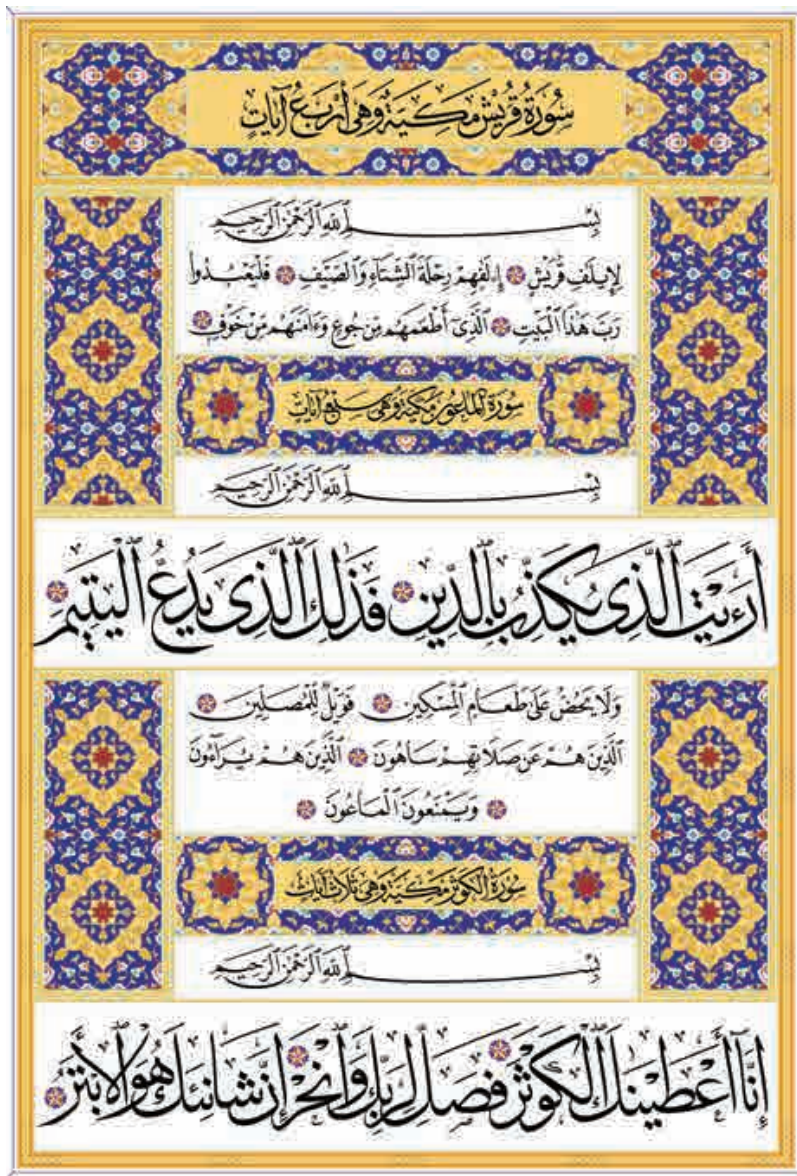 سُورَةُ قُرَيْشٍ مَكِّيَّةٌ وَهِيَ أَرْبَعُ آيَاتٍ
بِسْمِ ٱللَّهِ ٱلرَّحْمَٰنِ ٱلرَّحِيمِ
لِإِيلَٰفِ قُرَيْشٍ إِۦلَٰفِهِمْ رِحْلَةَ ٱلشِّتَآءِ وَٱلصَّيْفِ فَلْيَعْبُدُوا۟
رَبَّ هَٰذَا ٱلْبَيْتِ ٱلَّذِىٓ أَطْعَمَهُم مِّن جُوعٍ وَءَامَنَهُم مِّنْ خَوْفٍ
سُورَةُ الْمَاعُونِ مَكِّيَّةٌ وَهِيَ سَبْعُ آيَاتٍ
بِسْمِ ٱللَّهِ ٱلرَّحْمَٰنِ ٱلرَّحِيمِ
أَرَءَيْتَ ٱلَّذِى يُكَذِّبُ بِٱلدِّينِ فَذَٰلِكَ ٱلَّذِى يَدُعُّ ٱلْيَتِيمَ
وَلَا يَحُضُّ عَلَىٰ طَعَامِ ٱلْمِسْكِينِ فَوَيْلٌ لِّلْمُصَلِّينَ
ٱلَّذِينَ هُمْ عَن صَلَاتِهِمْ سَاهُونَ ٱلَّذِينَ هُمْ يُرَآءُونَ
وَيَمْنَعُونَ ٱلْمَاعُونَ
سُورَةُ الْكَوْثَرِ مَكِّيَّةٌ وَهِيَ ثَلَاثُ آيَاتٍ
بِسْمِ ٱللَّهِ ٱلرَّحْمَٰنِ ٱلرَّحِيمِ
إِنَّآ أَعْطَيْنَٰكَ ٱلْكَوْثَرَ فَصَلِّ لِرَبِّكَ وَٱنْحَرْ إِنَّ شَانِئَكَ هُوَ ٱلْأَبْتَرُ